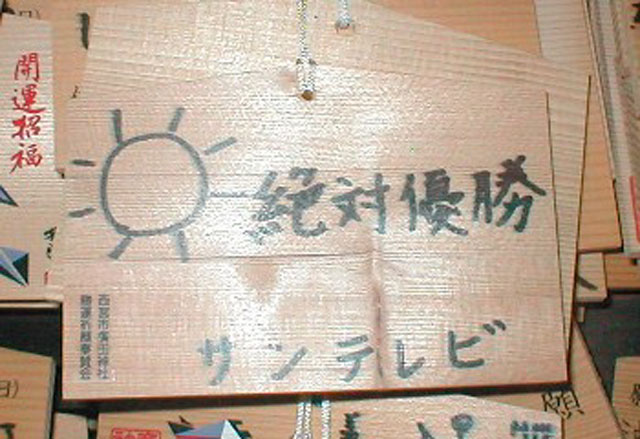 開運招福
絶対優勝
サンテレビ
西宮市廣田神社
勝運祈願奉賛会
願